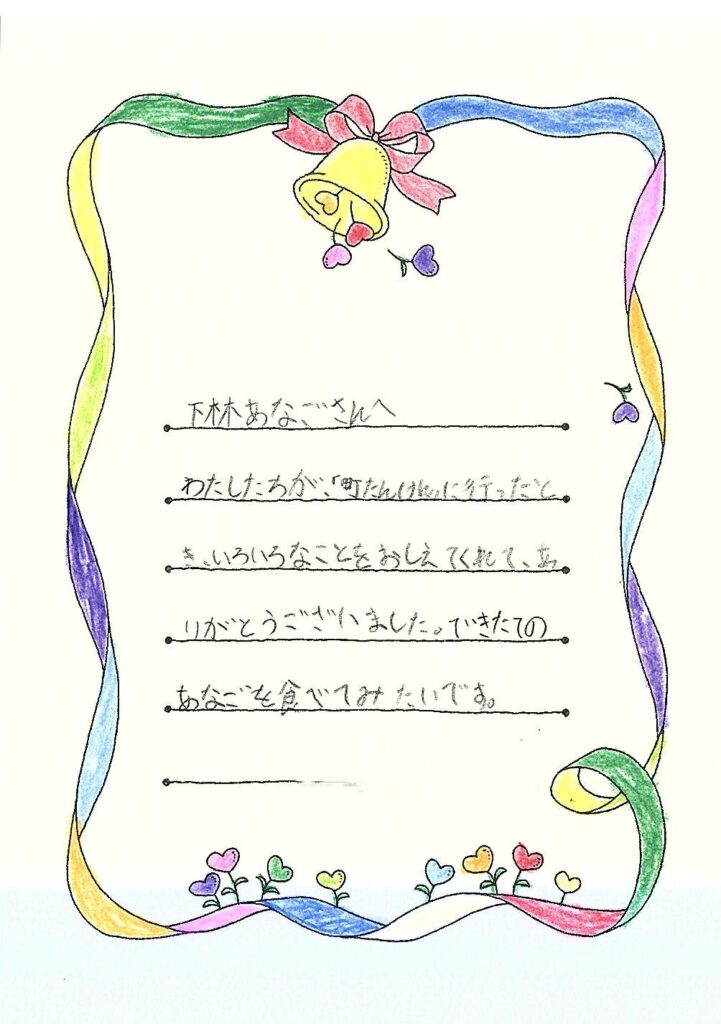 下林あなごさんへ
わたしたちが、「町たんけん」に行ったと
き、いろいろなことをおしえてくれて、あ
りがとうございました。できたての
あなごを食べてみたいです。